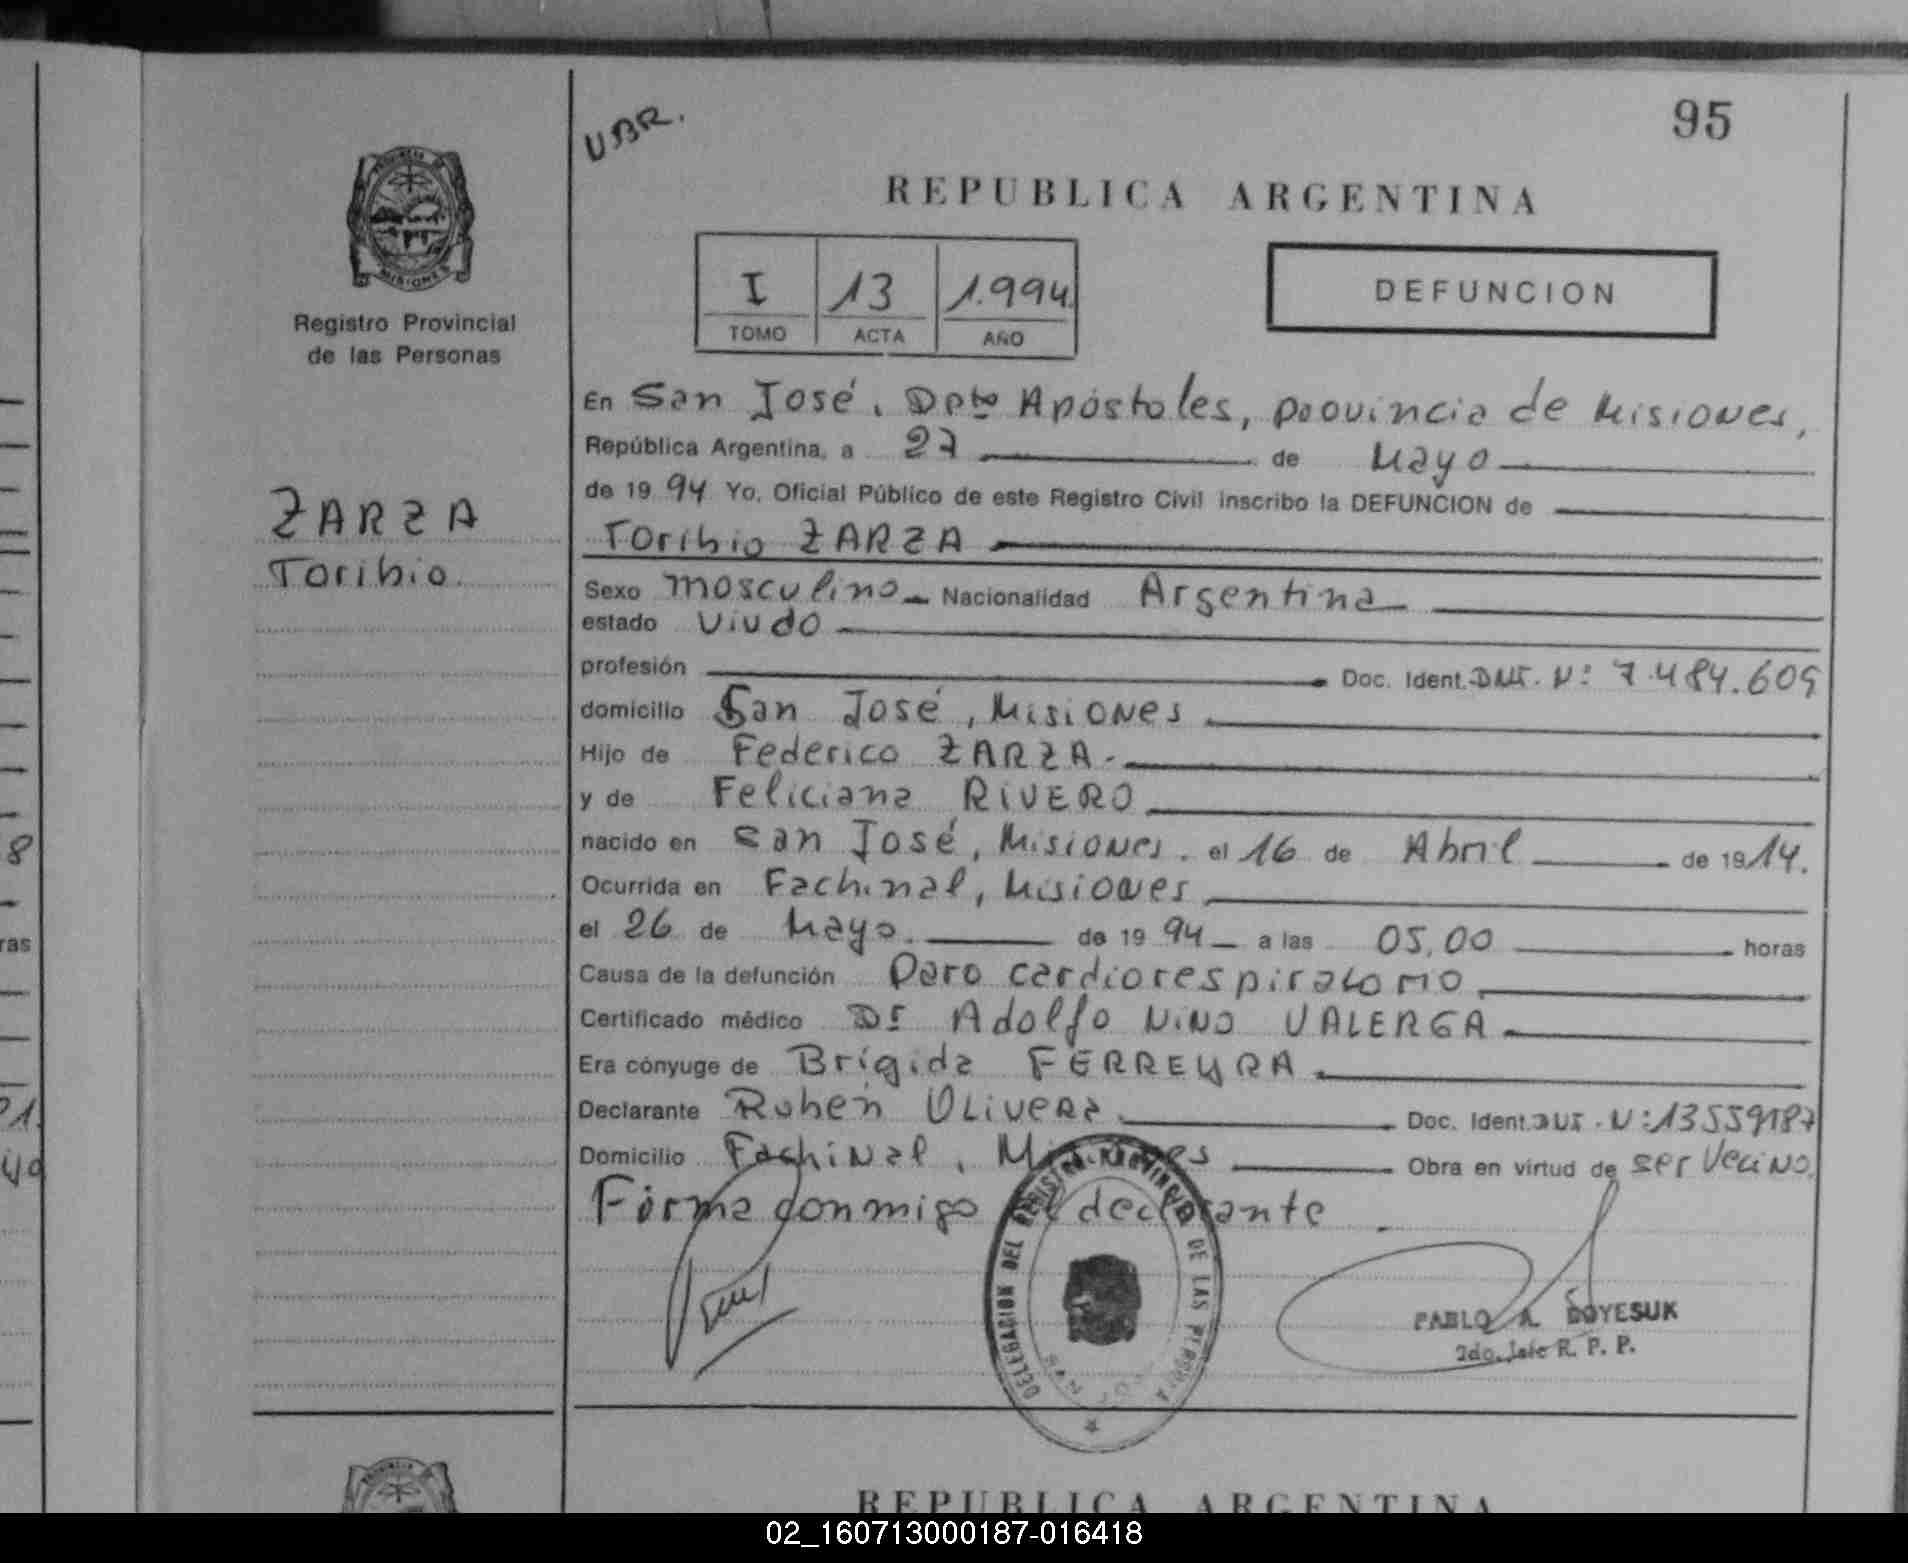 UBR.
95
PROVINCIA DE
MISIONES
Registro Provincial
de las Personas
REPUBLICA ARGENTINA
I 13 1.994.
TOMO ACTA AÑO
DEFUNCION
En San José, Dpto Apóstoles, provincia de Misiones,
República Argentina, a 27 de Mayo
de 19 94 Yo, Oficial Público de este Registro Civil inscribo la DEFUNCION de
ZARZA
Toribio.
Toribio ZARZA
Sexo masculino Nacionalidad Argentina
estado Viudo
profesión Doc. Ident. DNI. Nº 7.484.609
domicilio San José, Misiones
Hijo de Federico ZARZA.
y de Feliciana RIVERO
nacido en San José, Misiones. el 16 de Abril de 19 14.
Ocurrida en Fachinal, Misiones
el 26 de Mayo. de 19 94 a las 05,00 horas
Causa de la defunción Paro cardiorespiratorio
Certificado médico Dr Adolfo NINO VALERGA
Era cónyuge de Brígida FERREYRA
Declarante Rubén OLIVERA Doc. Ident. DNI. Nº 13559187
Domicilio Fachinal, Misiones Obra en virtud de ser Vecino.
Firma conmigo el declarante.
DELEGACION DEL REGISTRO PROVINCIAL DE LAS PERSONAS
SAN JOSE
PABLO A. BOYESUK
2do. Jefe R. P. P.
8
ras
21.
40
PROVINCIA DE
REPUBLICA ARGENTINA
02_160713000187-016418